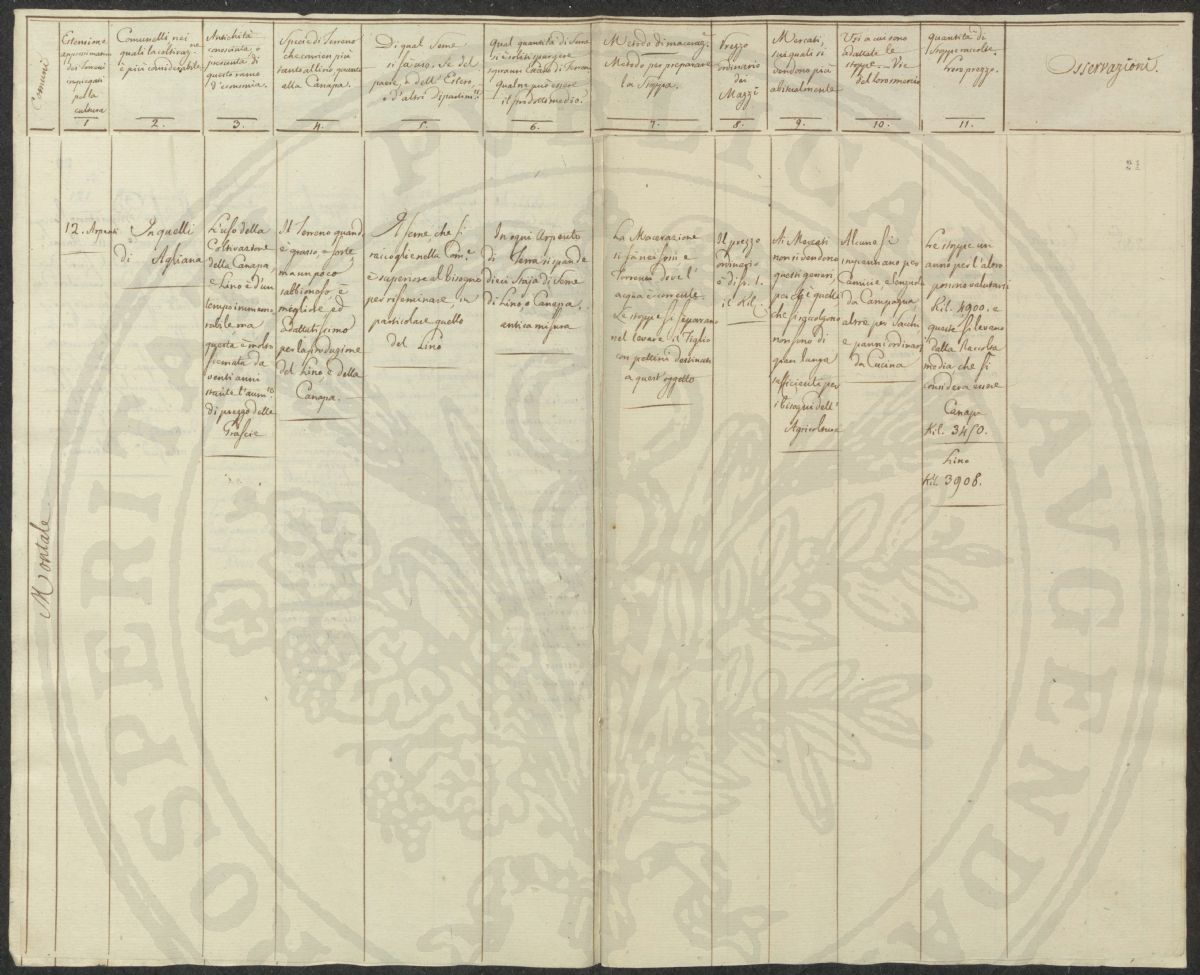 Comuni
Estensione
approssimativa
dei Terreni
impiegati
nella
cultura
1
Comunelli nei
quali la coltivaz.ne
è più considerabile
2.
Antichità
conosciuta, o
presunta di
questo ramo
d'economia.
3.
Specie di Terreno
che convien più
tanto al Lino, quanto
alla Canapa.
4.
Di qual Seme
si fa uso. Se del
paese, o dell'Estero,
o d'altri dipartim.ti
5.
Qual quantità di Seme
si è soliti spargere
sopra un dato di Terreno
Qual ne può essere
il prodotto medio.
6.
Metodo di maceraz.e
Metodo per preparare
la Stoppa.
7.
Prezzo
ordinario
dei
Mazzi
8.
Mercati,
sui quali si
vendono più
abitualmente
9.
Usi a cui sono
adattate le
stoppe. Vie
del loro smercio
10.
Quantità di
Stoppe raccolte.
Loro prezzo.
11.
Osservazioni.
21
Montale
12. Arpenti
In quelli
di Agliana
L'uso della
Coltivazione
della Canapa,
e Lino è d'un
tempo immemo=
rabile ma
questa è molto
scemata da
venti anni
stante l'aum.to
di prezzo delle
Grascie
Il Terreno quando
è grasso, e forte,
ma un poco
sabbionoso, è
migliore ed
adattatissimo
per la produzione
del Lino, e della
Canapa.
Il seme, che si
raccoglie nella Com.e
è superiore al bisogno
per riseminare, in
particolare quello
del Lino
In ogni Arpento
di Terra si spande
dieci Staja di Seme
di Lino, o Canapa.
antica misura
La Macerazione
si fa nei fossi e
Torrenti dove l'
acqua è corrente.
Le stoppe si separano
nel lavare il Tiglio
con pettini destinati
a quest'oggetto
Il prezzo
ordinario
è di fr. 1.
il Kil.
Ai Mercati
non si vendono
questi generi,
perchè quelli
che si raccolgono
non sono di
gran lunga
sufficienti per
i bisogni dell'
Agricoltura
Alcune s'
impiegano per
Camicie e lenzuola
da Campagna
altre per Sacchi
e panni ordinarj
da Cucina
Le stoppe un
anno per l'altro
posson valutarsi
Kil. 4900. e
queste si levano
della Raccolta
media che si
considera essere
Canapa
Kil. 3450.
Lino
Kil. 3908.